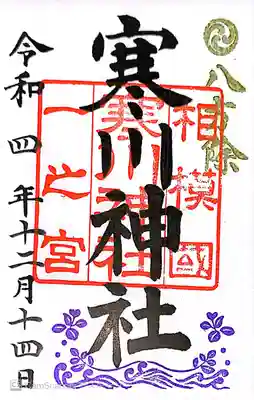 八方除
寒川神社
相模國
寒川神社
一之宮
令和四年十二月十四日